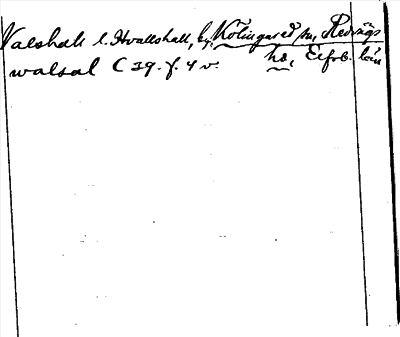 Valshall l. Hvallshall, by, Kölingared sn, Redvägs
walsal C 29. f. 4 v. hd, Elfsb. län